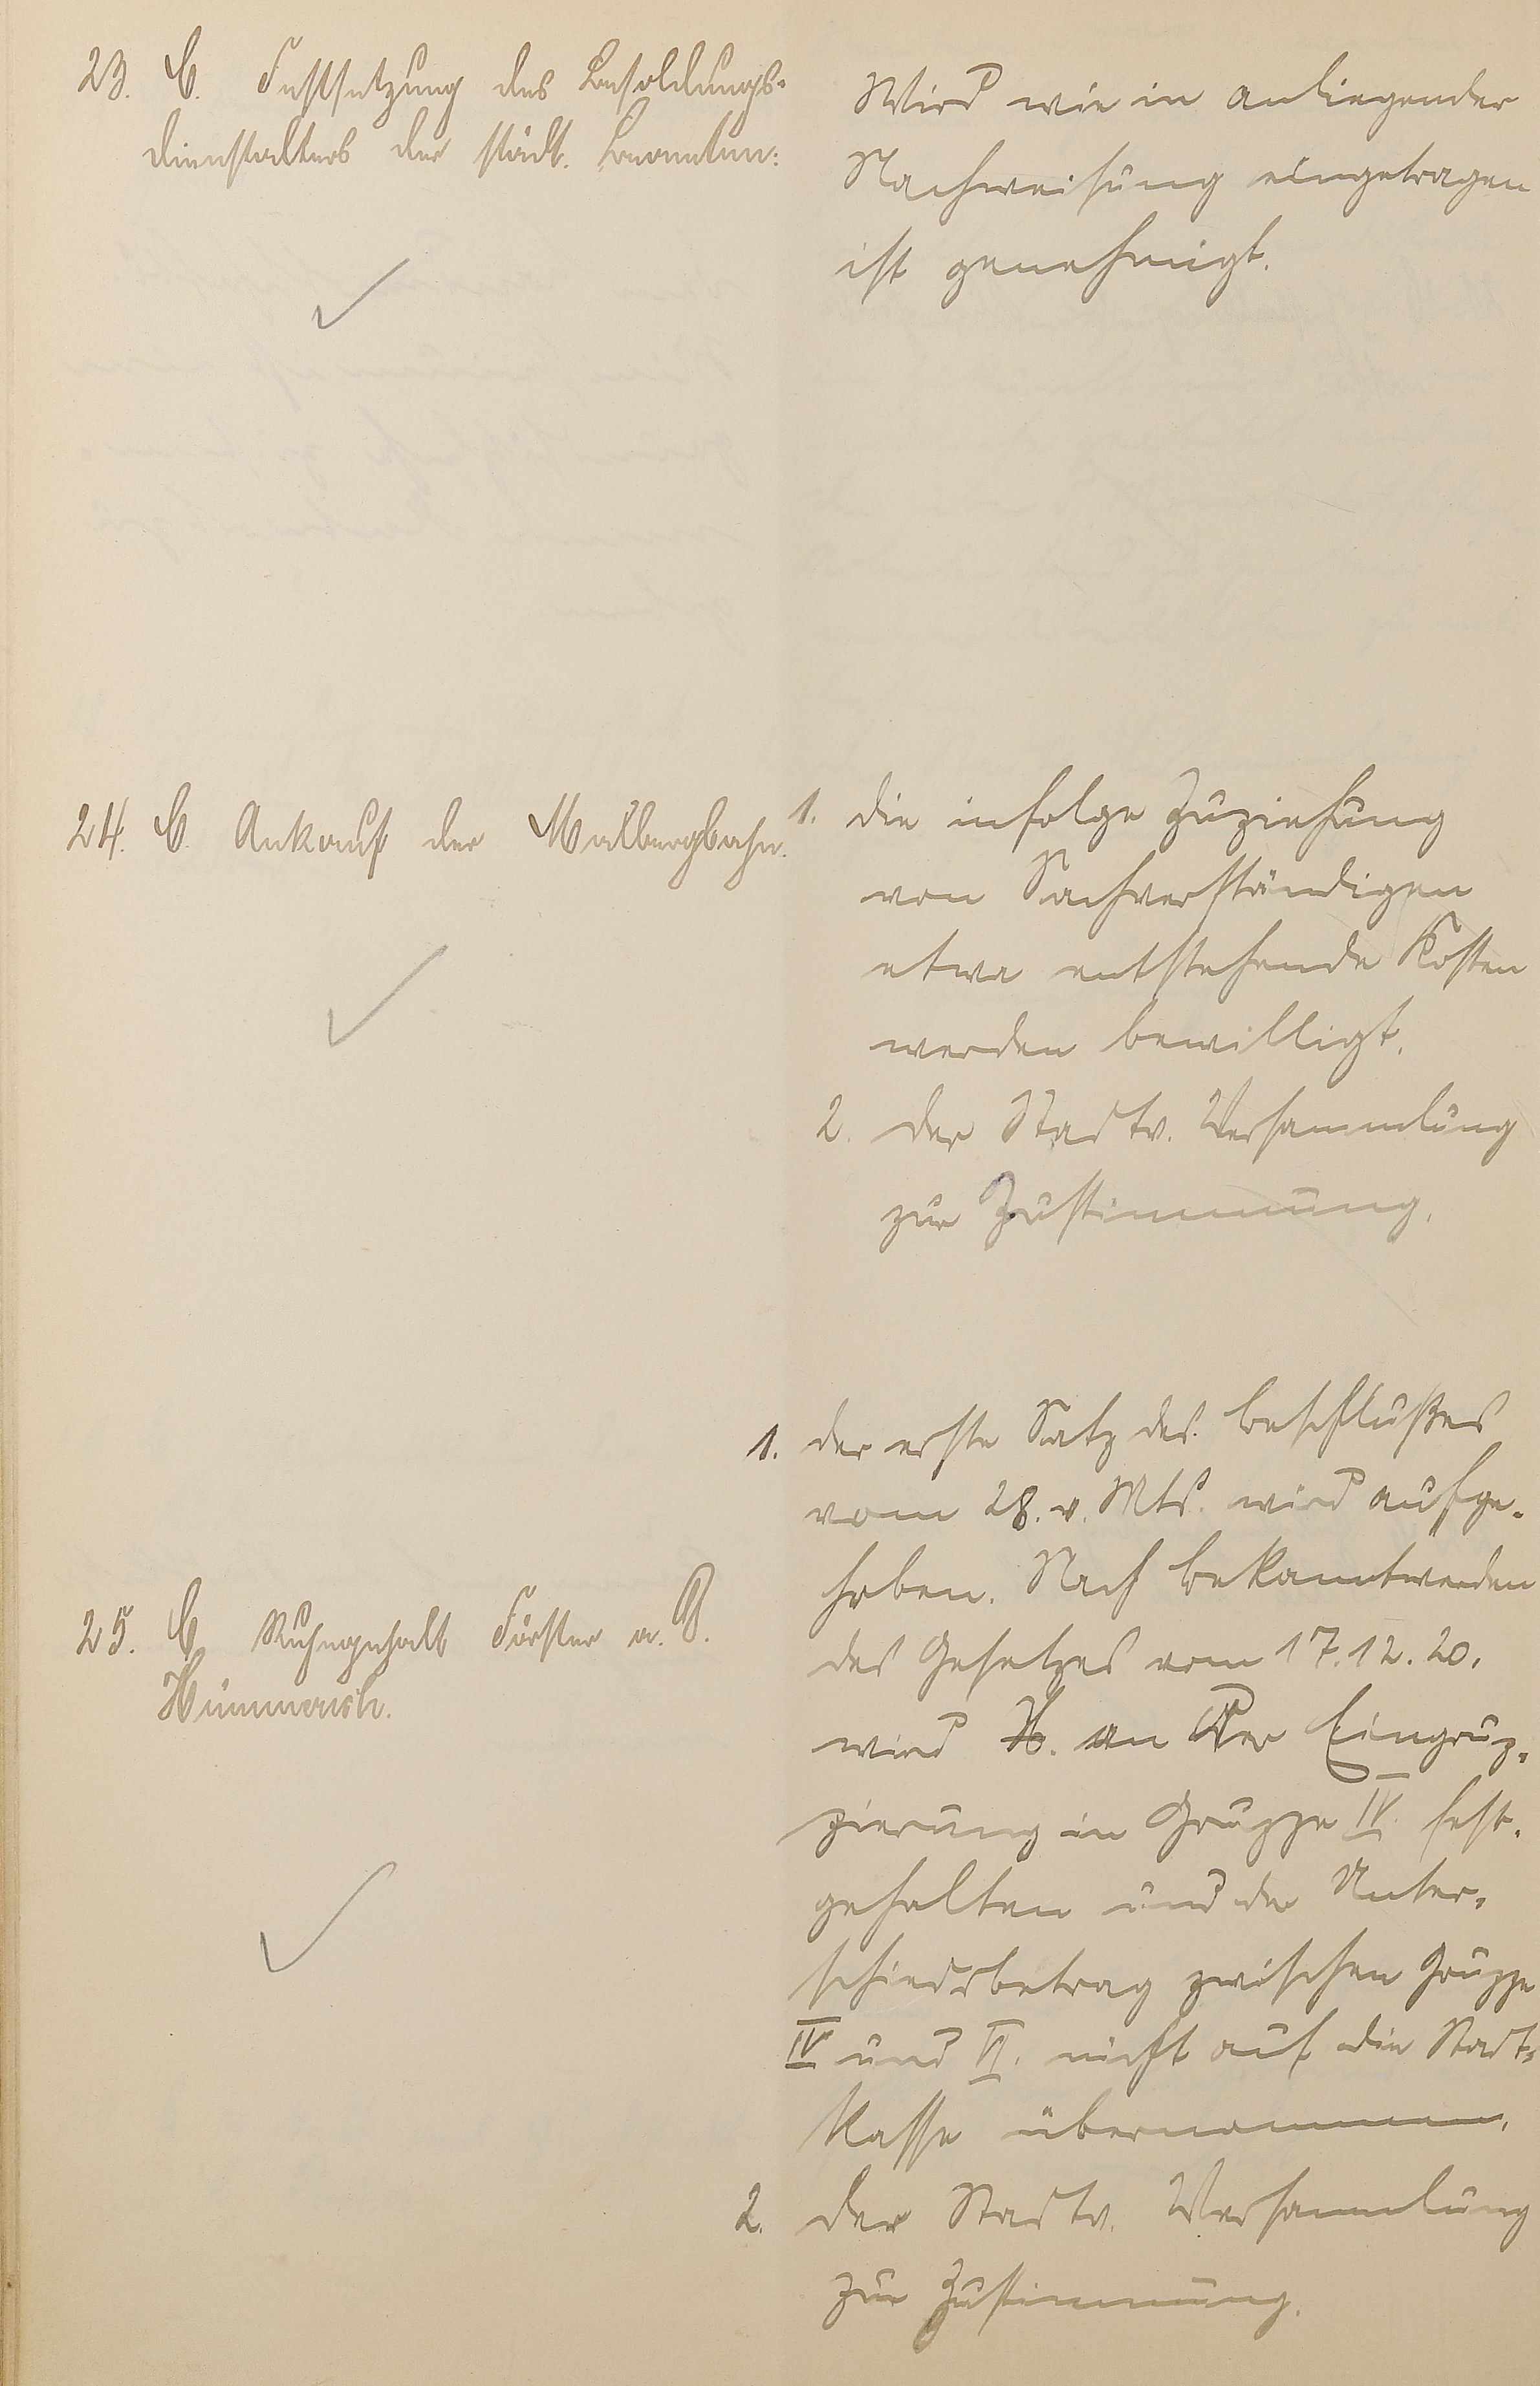 23. C. Festsetzung des Besoldungs-
dienstalters der städt. Beamten:
Wird wie in anliegender
Nachweisung eingetragen
ist genehmigt.
24. C. Ankauf der Malbergbahn.
1. die infolge Zuziehung
von Sachverständigen
etwa entstehende Kosten
werden bewilligt.
2. der Stadtv. Versammlung
zur Zustimmung.
25. C Ruhegehalt Förster a. D.
Hümmerich.
1. der erste Satz des Beschlußes
vom 28. v. Mts. wird aufge-
hoben. Nach Bekanntwerden
des Gesetzes vom 17.12.20.
wird H. an der Eingrup-
pierung in Gruppe IV fest-
gehalten und der Unter-
schiedsbetrag zwischen Gruppe
IV und VI. nicht auf die Stadt-
kasse übernommen.
2. der Stadtv. Versammlung
zur Zustimmung.